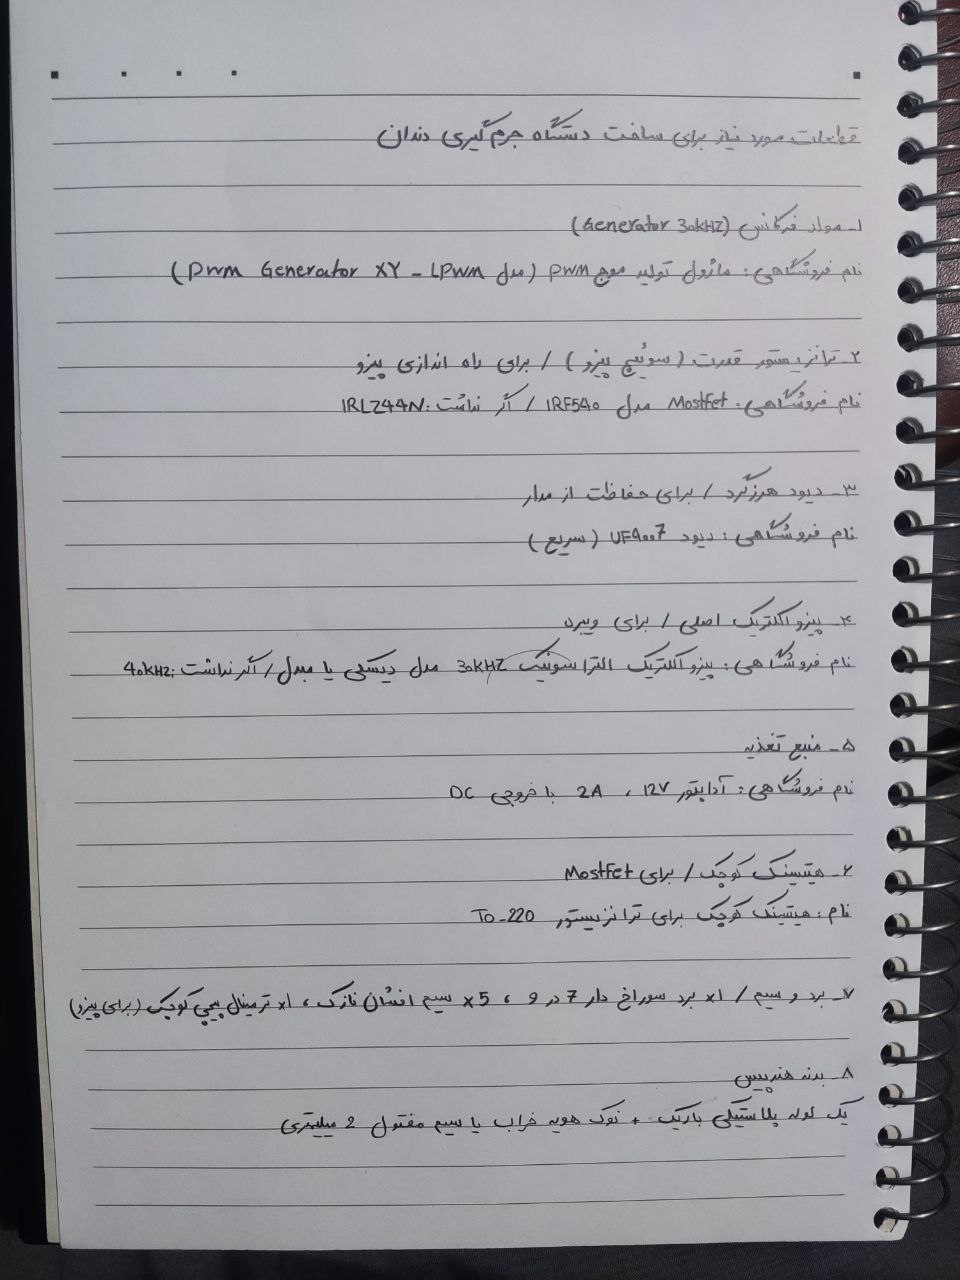 قطعات مورد نیاز برای ساخت دستگاه جرم گیری دندان
۱- مولد فرکانس (Generator 30kHz)
نام فروشگاهی: ماژول تولید موج PWM (مدل PWM Generator XY - LPWM)
۲- ترانزیستور قدرت (سوئیچ پیزو) / برای راه اندازی پیزو
نام فروشگاهی: Mostfet مدل IRF540 / اگر نداشت: IRLZ44N
۳- دیود هرزگرد / برای حفاظت از مدار
نام فروشگاهی: دیود UF4007 (سریع)
۴- پیزو الکتریک اصلی / برای ویبره
نام فروشگاهی: پیزو الکتریک التراسونیک 30kHz مدل دیسکی یا مبدل / اگر نداشت: 40kHz
۵- منبع تغذیه
نام فروشگاهی: آداپتور 12V ، 2A با خروجی DC
۶- هیتسینک کوچک / برای Mostfet
نام: هیتسینک کوچک برای ترانزیستور TO-220
۷- برد و سیم / 1x برد سوراخ دار 7 در 9 ، 5x سیم افشان نازک ، 1x ترمینال پیچی کوچک (برای پیزو)
۸- بدنه هندپیس
یک لوله پلاستیکی باریک + نوک هویه خراب یا سیم مفتول 2 میلیمتری